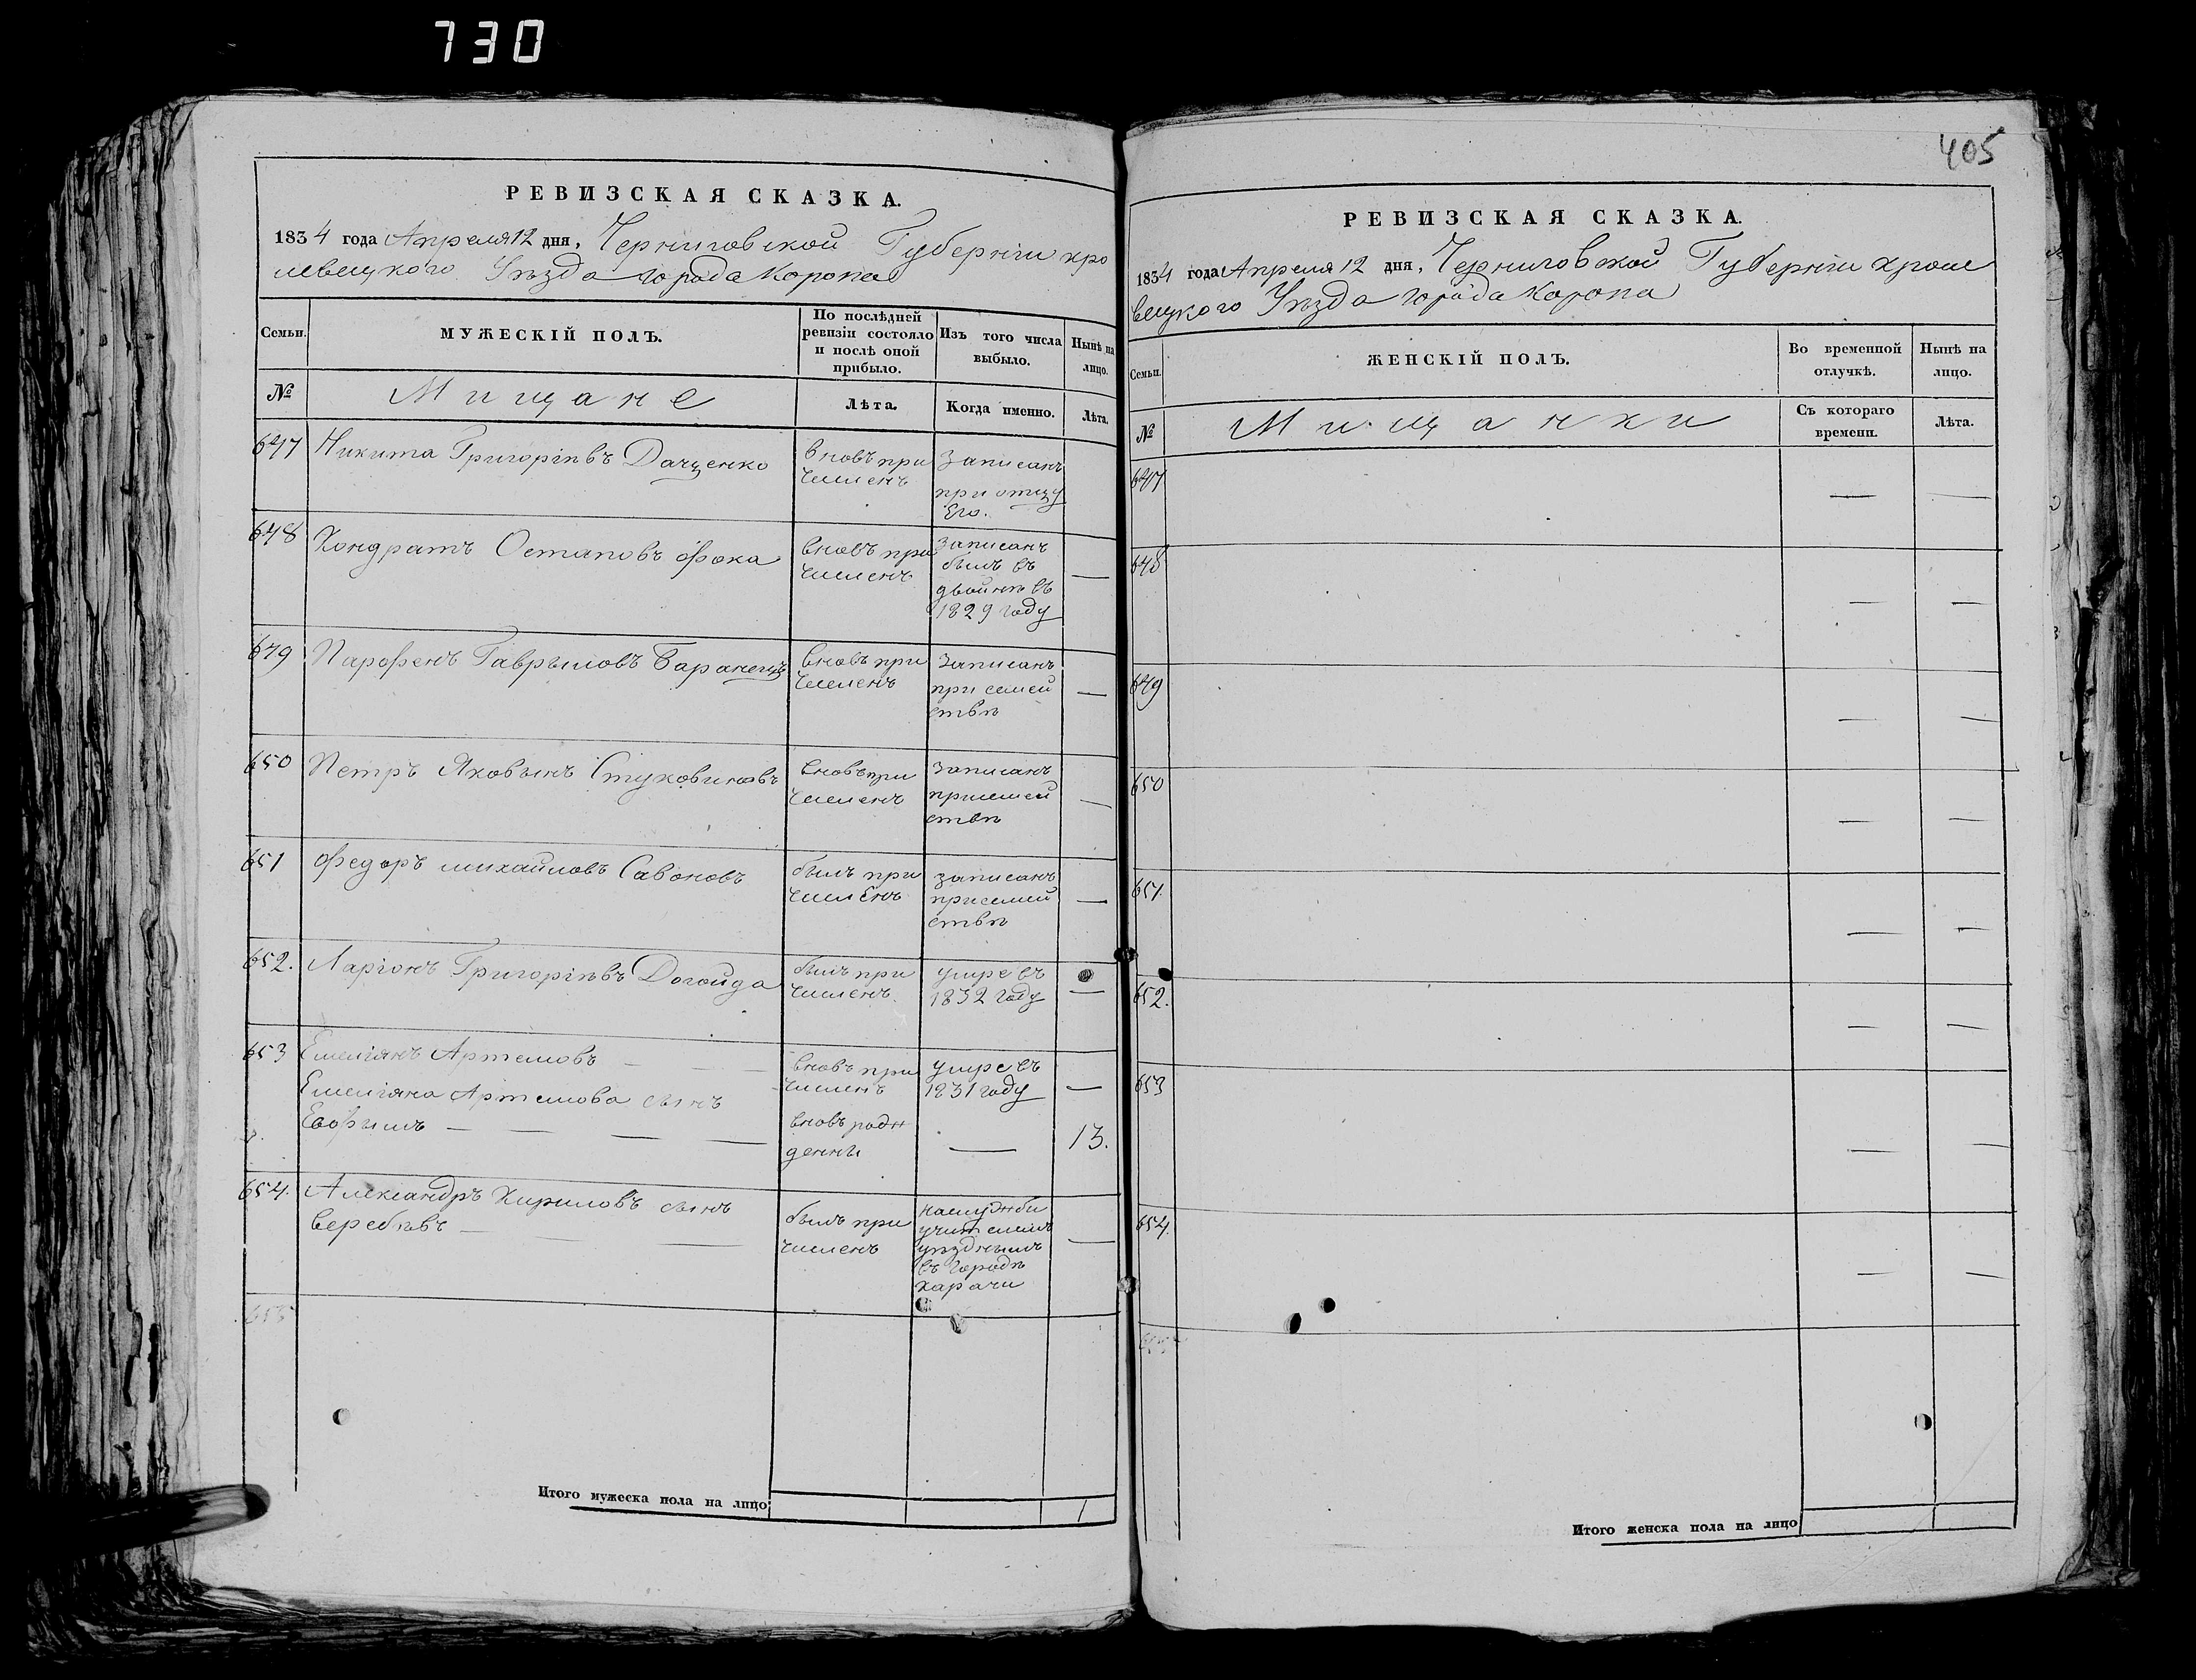 730
РЕВИЗСКАЯ СКАЗКА.
1834 года Апреля 12 дня, Черниговской Губернiи кро
левецкого Уѣзда города Коропа
Семьи.
МУЖЕСКІЙ ПОЛЪ.
По послѣдней ревизіи состояло и послѣ оной прибыло.
Изъ того числа выбыло.
Нынѣ на лицо.
№
Мищане
Лѣта.
Когда именно.
Лѣта.
647 Никита Григорiевъ Дащенко
вновъ при
численъ
Записанъ
при отцу
Его.
648 Кондратъ Остаповъ Фока
вновъ при
численъ
Записанъ
былъ въ
двойнѣ въ
1829 году
—
649 Парфенъ Гаврыловъ Баранецъ
вновъ при
численъ
Записанъ
при семей
ствѣ
—
650 Петръ Яковынъ
вновъ при
численъ
Записанъ
присемей
ствѣ
—
651 Федоръ михайловъ Савоновъ
былъ при
численъ
записанъ
присемей
ствѣ
—
652. Ларiонъ Григорiевъ Догойда
былъ при
численъ
умре въ
1832 году
—
653 Емелiянъ Артемовъ — — —
вновъ при
численъ
умре въ
1831 году
—
Емелiяна Артемова сынъ
Ефымъ — — — —
вновъ рож
денни
—
13.
654. Александръ Кириловъ сынъ
Веребѣвъ — — —
былъ при
численъ
наслужби
учителемъ
уѣзднымъ
въ городѣ
—
655
Итого мужеска пола на лицо
1
405
РЕВИЗСКАЯ СКАЗКА.
1834 года Апреля 12 дня, Черниговской Губернiи кроле
вецкого Уѣзда города Коропа
Семьи.
ЖЕНСКІЙ ПОЛЪ.
Во временной отлучкѣ.
Нынѣ на лицо.
№
Мищанки
Съ котораго времени.
Лѣта.
647 — —
648 — —
649 — —
650 — —
651. — —
652. — —
653 — —
654. — —
655
Итого женска пола на лицо